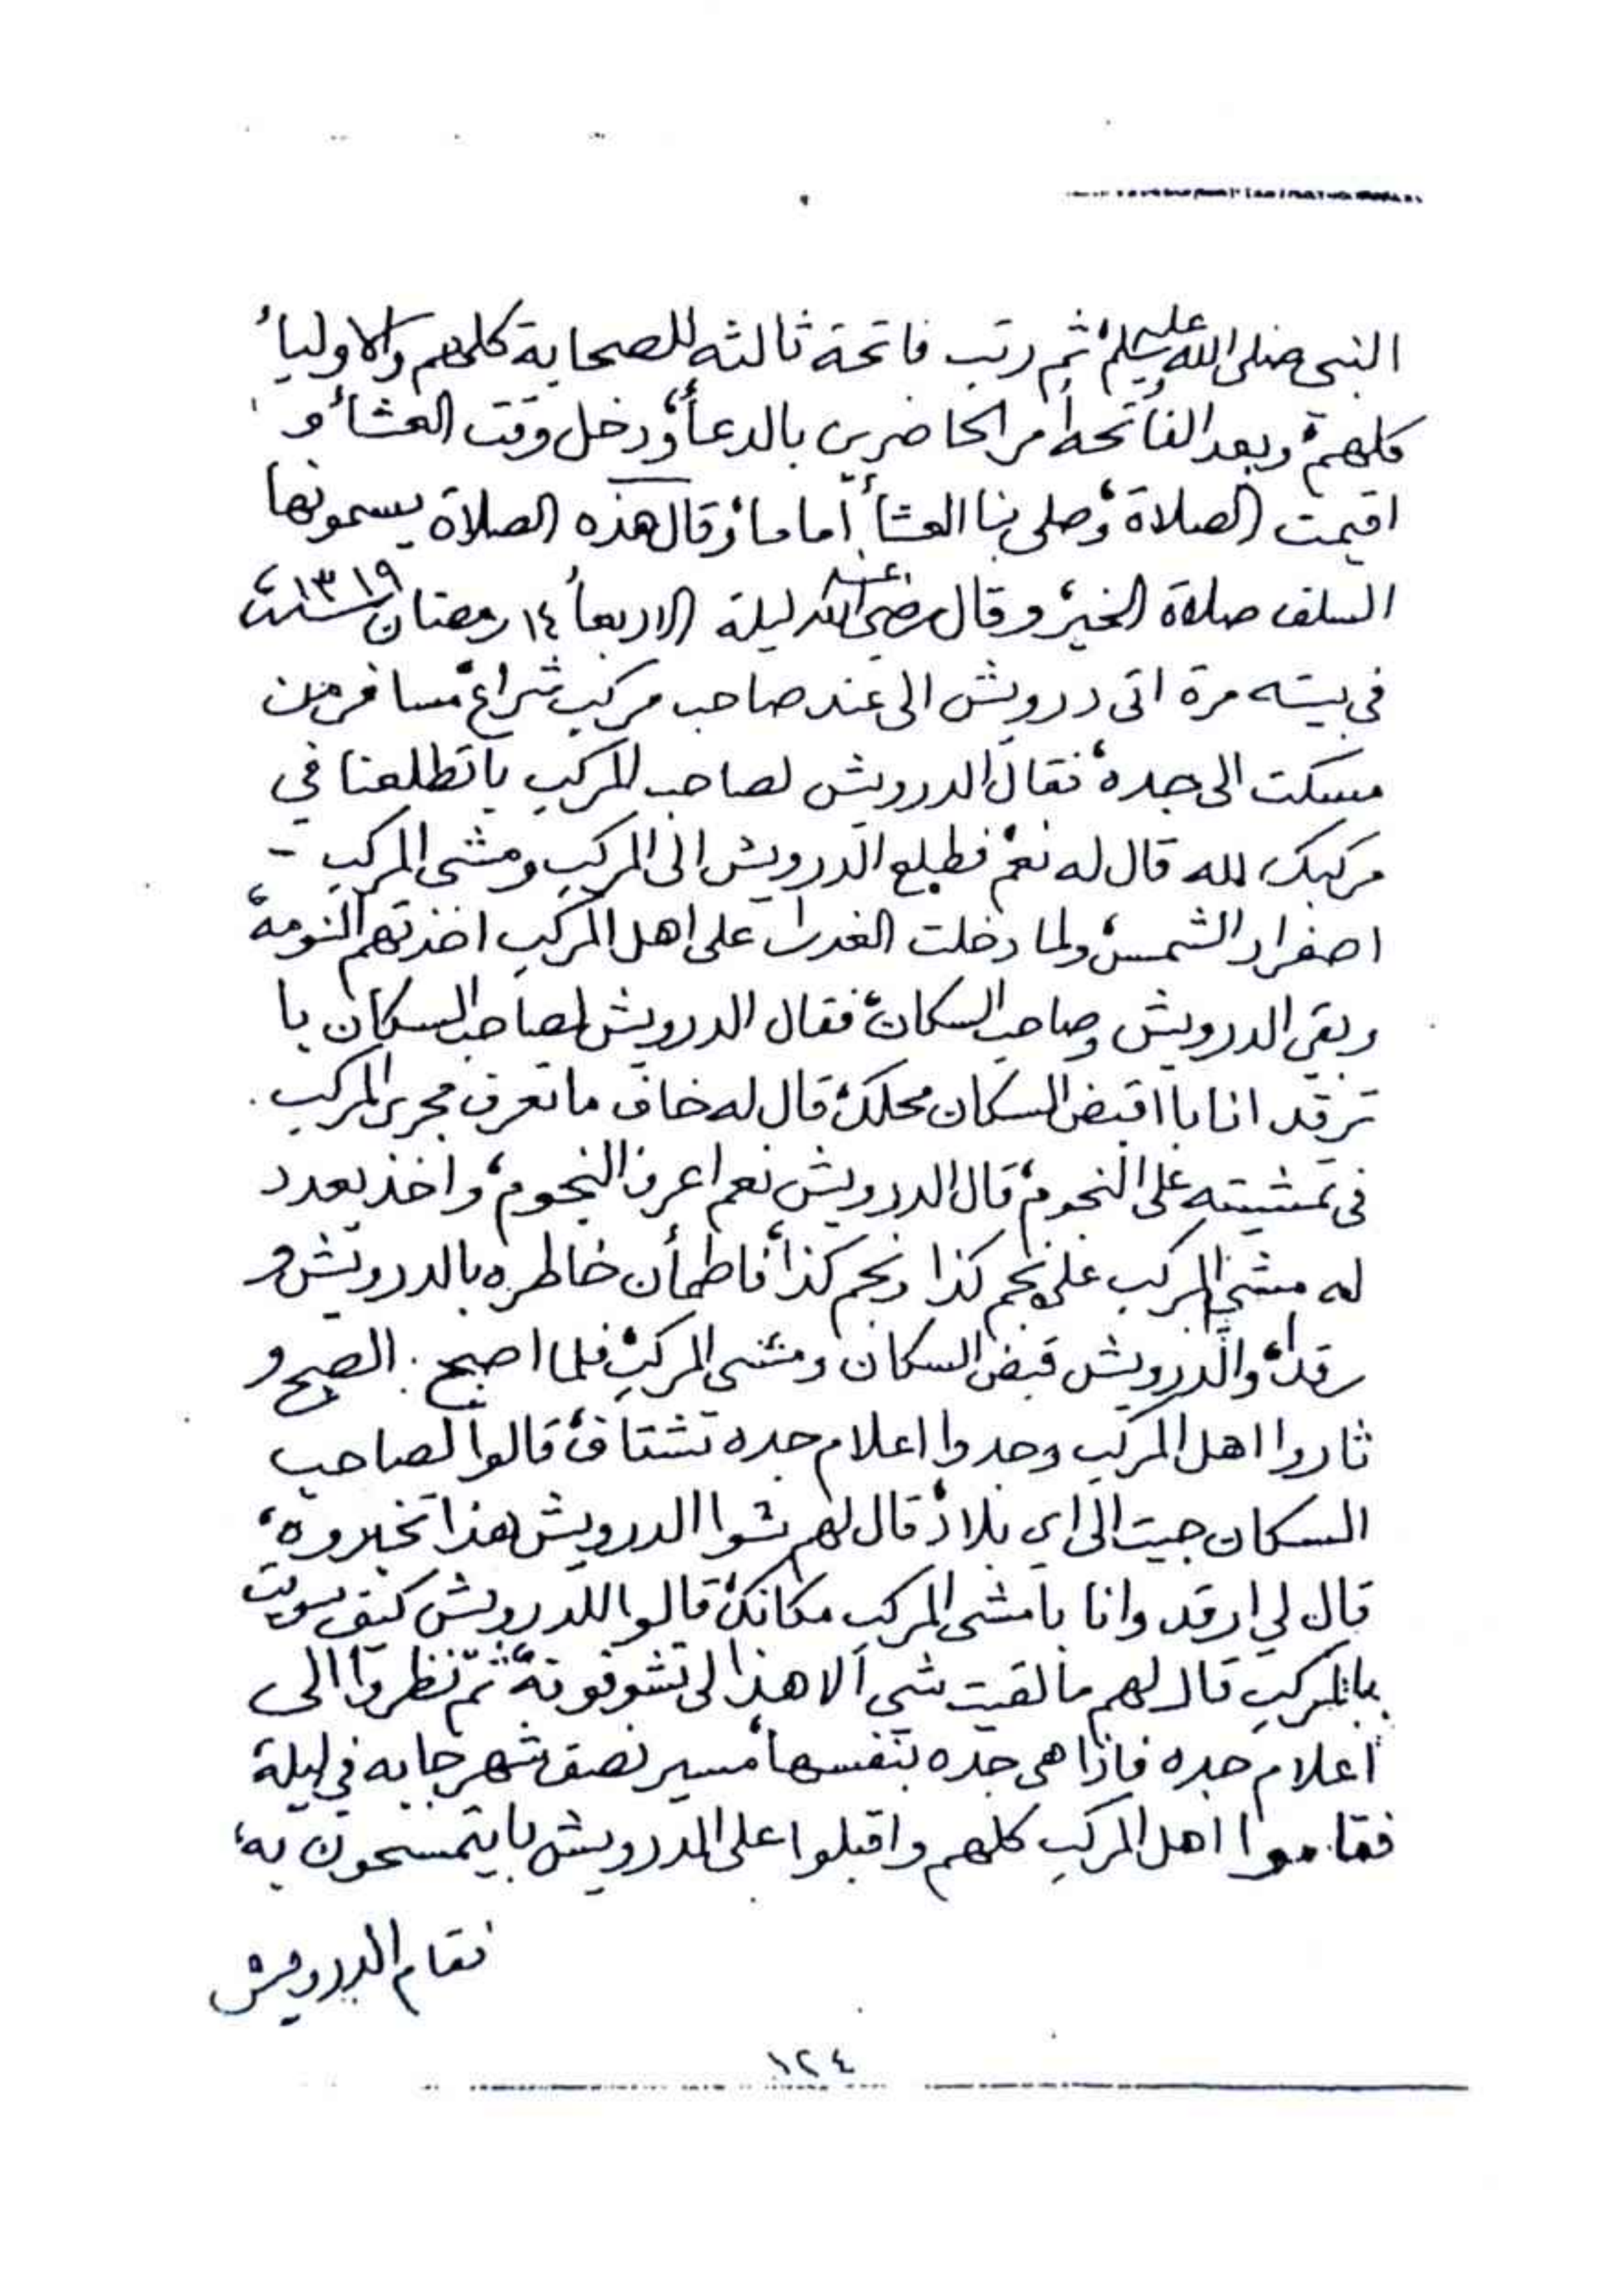 النبي صلى الله عليه وسلم، ثم رتب فاتحة ثالثه للصحابة كلهم والاولياء
كلهم، وبعد الفاتحه أمر الحاضرين بالدعاء، ودخل وقت العشاء و
اقيمت الصلاة، وصلى بنا العشاء أماما، وقال هذه الصلاة يسمونها
السلف صلاة الخير، وقال رضي الله عنه ليلة الاربعاء ١٤ رمضان سنة ١٣١٩،
في بيته مرة اتى درويش الى عند صاحب مركب شراع، مسافر من
مسكت الى جده، فقال الدرويش لصاحب المركب باتطلعنا في
مركبك لله قال له نعم، فطلع الدرويش الى المركب ومشى المركب -
اصفرار الشمس، ولما دخلت الغدرا على اهل المركب اخذتهم النومة،
وبقي الدرويش وصاحب السكان، فقال الدرويش لصاحب السكان با
ترقد انا با اقبض السكان محلك، قال له خاف ما تعرف مجرى المركب
في تمشيته على النجوم، قال الدرويش نعم اعرف النجوم، واخذ يعدد
له مشي المركب على نجم كذا ونجم كذا، فاطمأن خاطره بالدرويش و
رقد، والدرويش قبض السكان ومشى المركب، فلما اصبح الصبح و
ثاروا اهل المركب وجدوا اعلام جده تشتاف، قالوا لصاحب
السكان جيت الى اي بلاد، قال لهم شوا الدرويش هذا تخبروه،
قال لي ارقد وانا بامشى المركب مكانك، قالوا للدرويش كيف سويت
بالمركب قال لهم مالقيت شي الا هذا لى تشوفونه، ثم نظروا الى
أعلام جده فاذا هى جده بنفسها، مسير نصف شهر جابه في ليلة
فقاموا اهل المركب كلهم واقبلوا على الدرويش بايتمسحون به،
فقام الدرويش
١٢٤